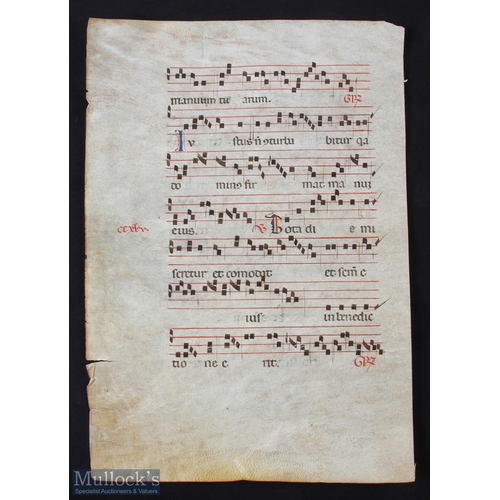 manuum tu arum. Gr̄
Iu stus nō cturbi bitur qa
do minꝰ fir mat ma nuz
ccxlv. eius. V Tota di e mi
seretur et comodat et sem̄ e
ius: in benedic
tio ne e rit. Gr̄
Mullock's
Specialist Auctioneers & Valuers